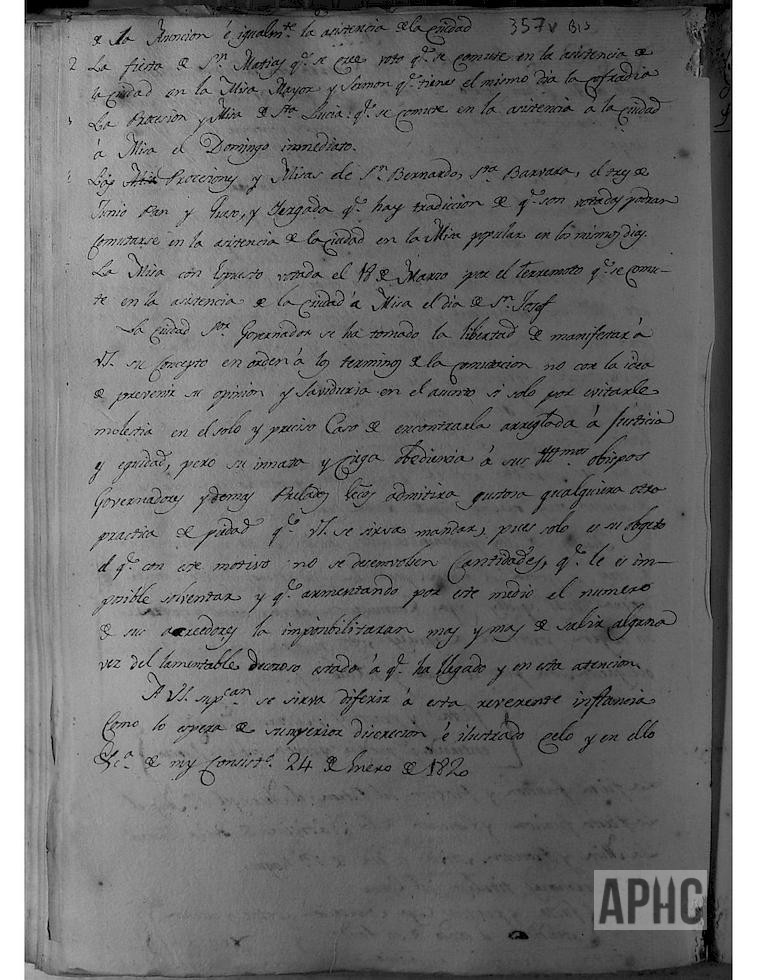 de la Asuncion é igualmte. la asistencia de la ciudad 357v BIS
2 La fiesta de Sn. Matias qe. se cree voto qe. se comute en la asistencia de
la ciudad en la Misa Mayor y Sermon qe. tiene el mismo dia la cofradia
La Procesion y Misa de Sta. Lucia: qe. se comute en la asistencia á la ciudad
á Misa el Domingo immediato.
Las Procciones y Misas de Sn. Bernardo, Sta. Barvara, el de
Junio y qe. hay tradicion de qe. son votadas podran
comutarse en la asistencia de la ciudad en la Misa popular en los mismos dias.
La Misa con votada el de Marzo por el terremoto qe. se comu-
te en la asistencia de la ciudad á Misa el dia de Sn. Josef
La ciudad Sor. Governador se ha tomado la libertad de manifestar á
VS. su concepto en orden á los terminos de la comutacion no con la idea
de prevenir su opinion y saviduria en el asunto si solo por evitarle
molestia en el solo y preciso caso de encontrarla arreglada á Justicia
y equidad, pero su innata y ciega obediencia á sus Illmos. obispos
Governadores y demas Prelados Eccos. admitira gustosa qualquiera otra
practica de piedad qe. VS. se sirva mandar, pues solo es su objeto
el qe. con este motivo no se desenvolsen cantidades, qe. le es im-
posible solventar y qe. aumentando por este medio el numero
de sus acreedores la imposibilitaran mas y mas de salir alguna
vez del lamentable estado á qe. ha llegado y en esta atencion
A VS. supcan. se sirva diferir á esta reverente instancia
como lo espera de su superior discrecion é ilustrado celo y en ello
de ny Consist. 24 de Enero de 1820
APHC